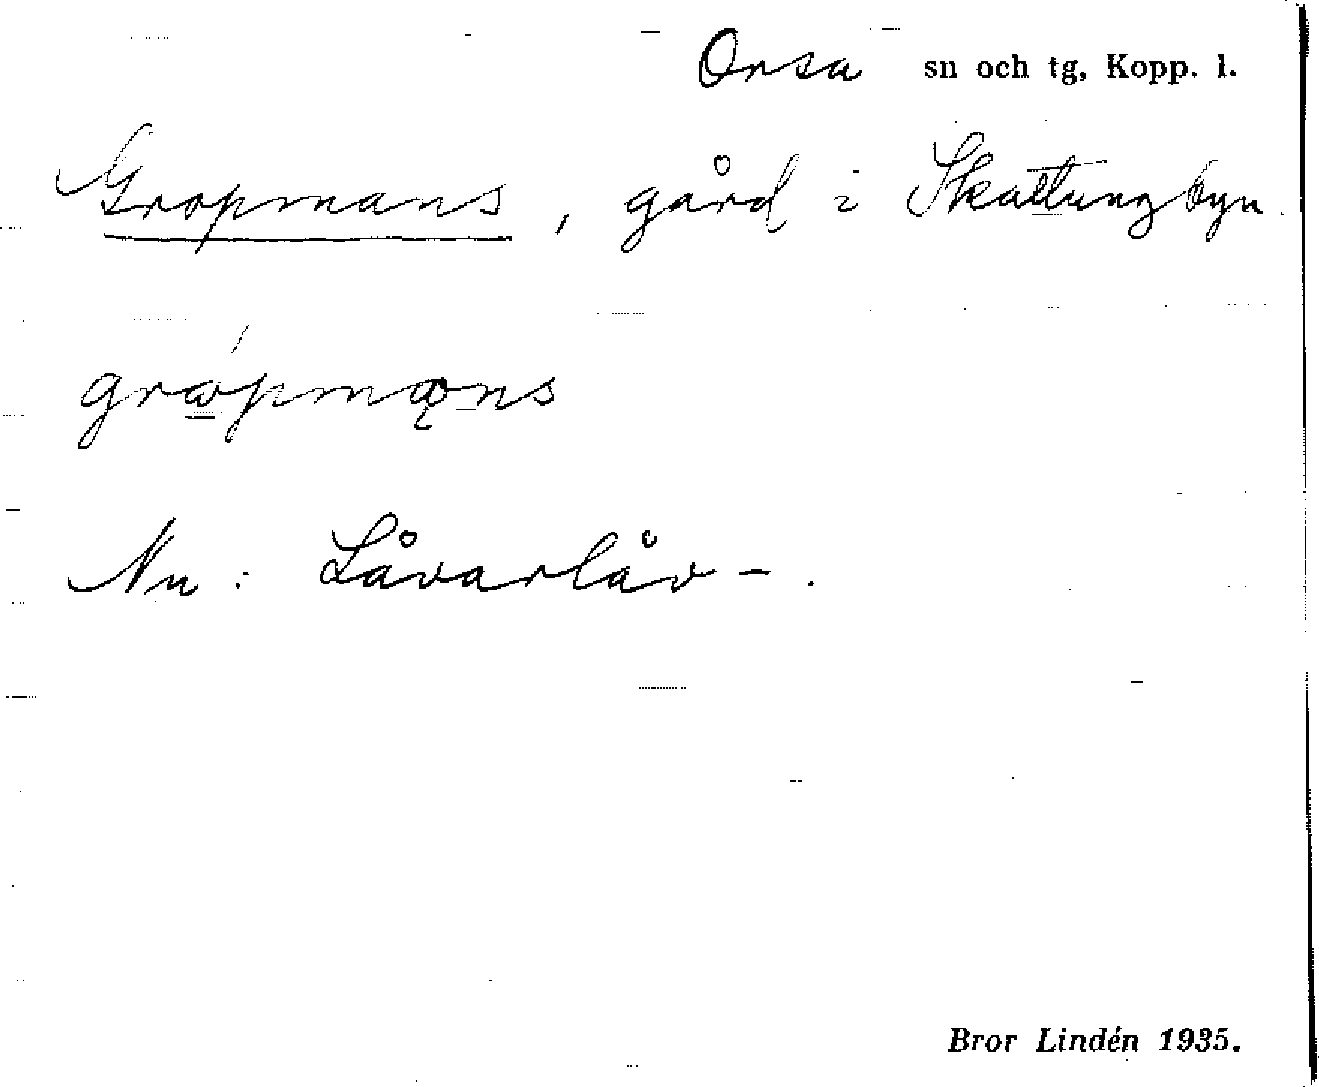 Orsa sn och tg, Kopp. l.
Gropmans, gård i Skattungbyn.
Nu: Låvarlåv-.
Bror Lindén 1935.